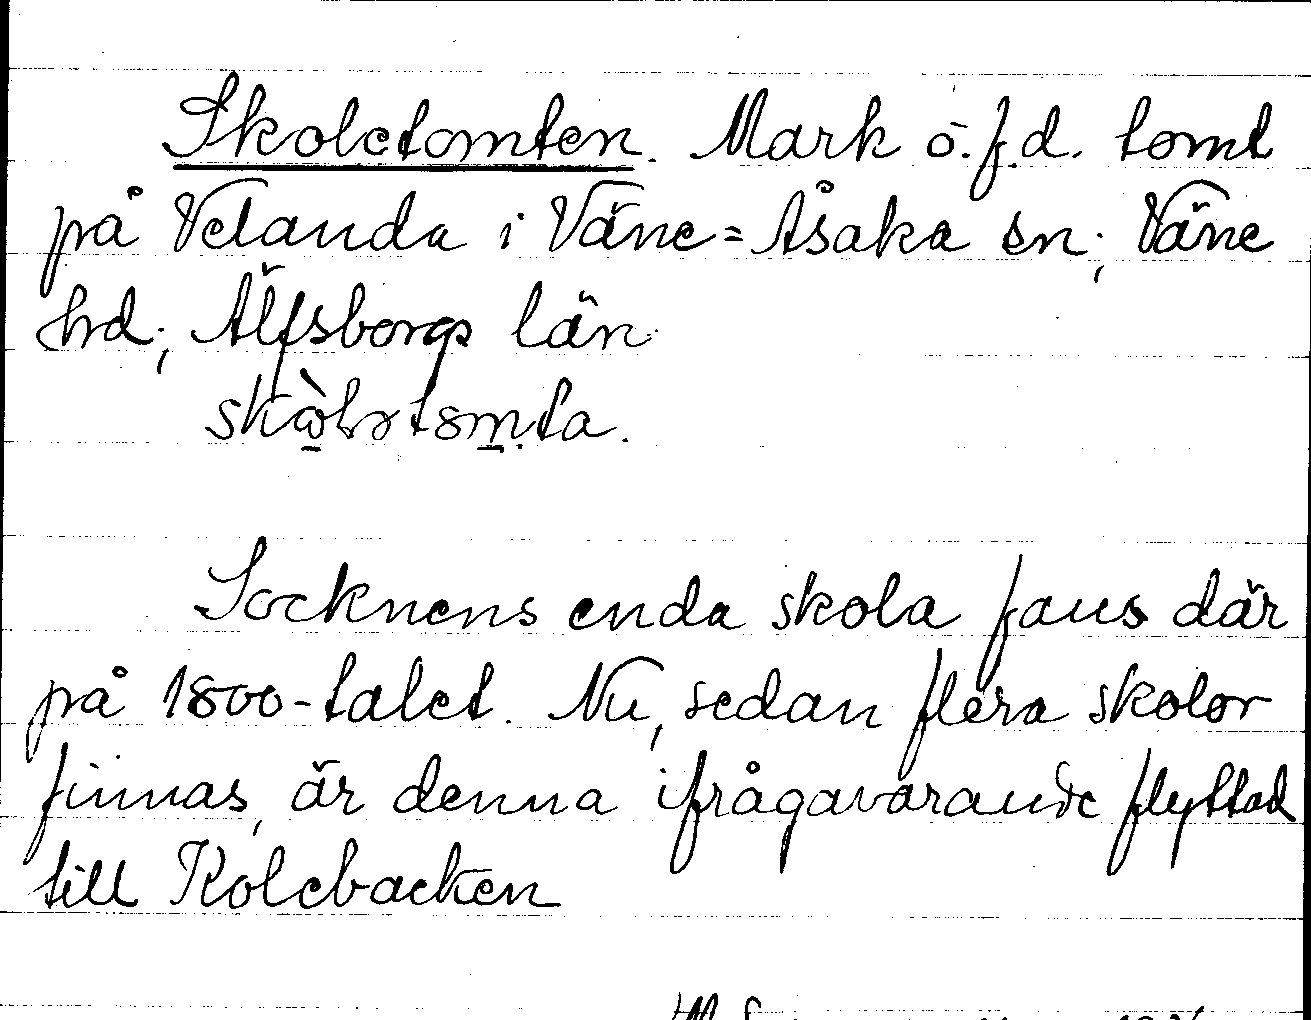 Skoletomten. Mark o. f.d. tomt
på Velanda i Väne=Åsaka sn; Väne
hrd; Älfsborgs län
Socknens enda skola fans där
på 1800-talet. Nu, sedan flera skolor
finnas, är denna ifrågavarande flyttad
till Kolebacken